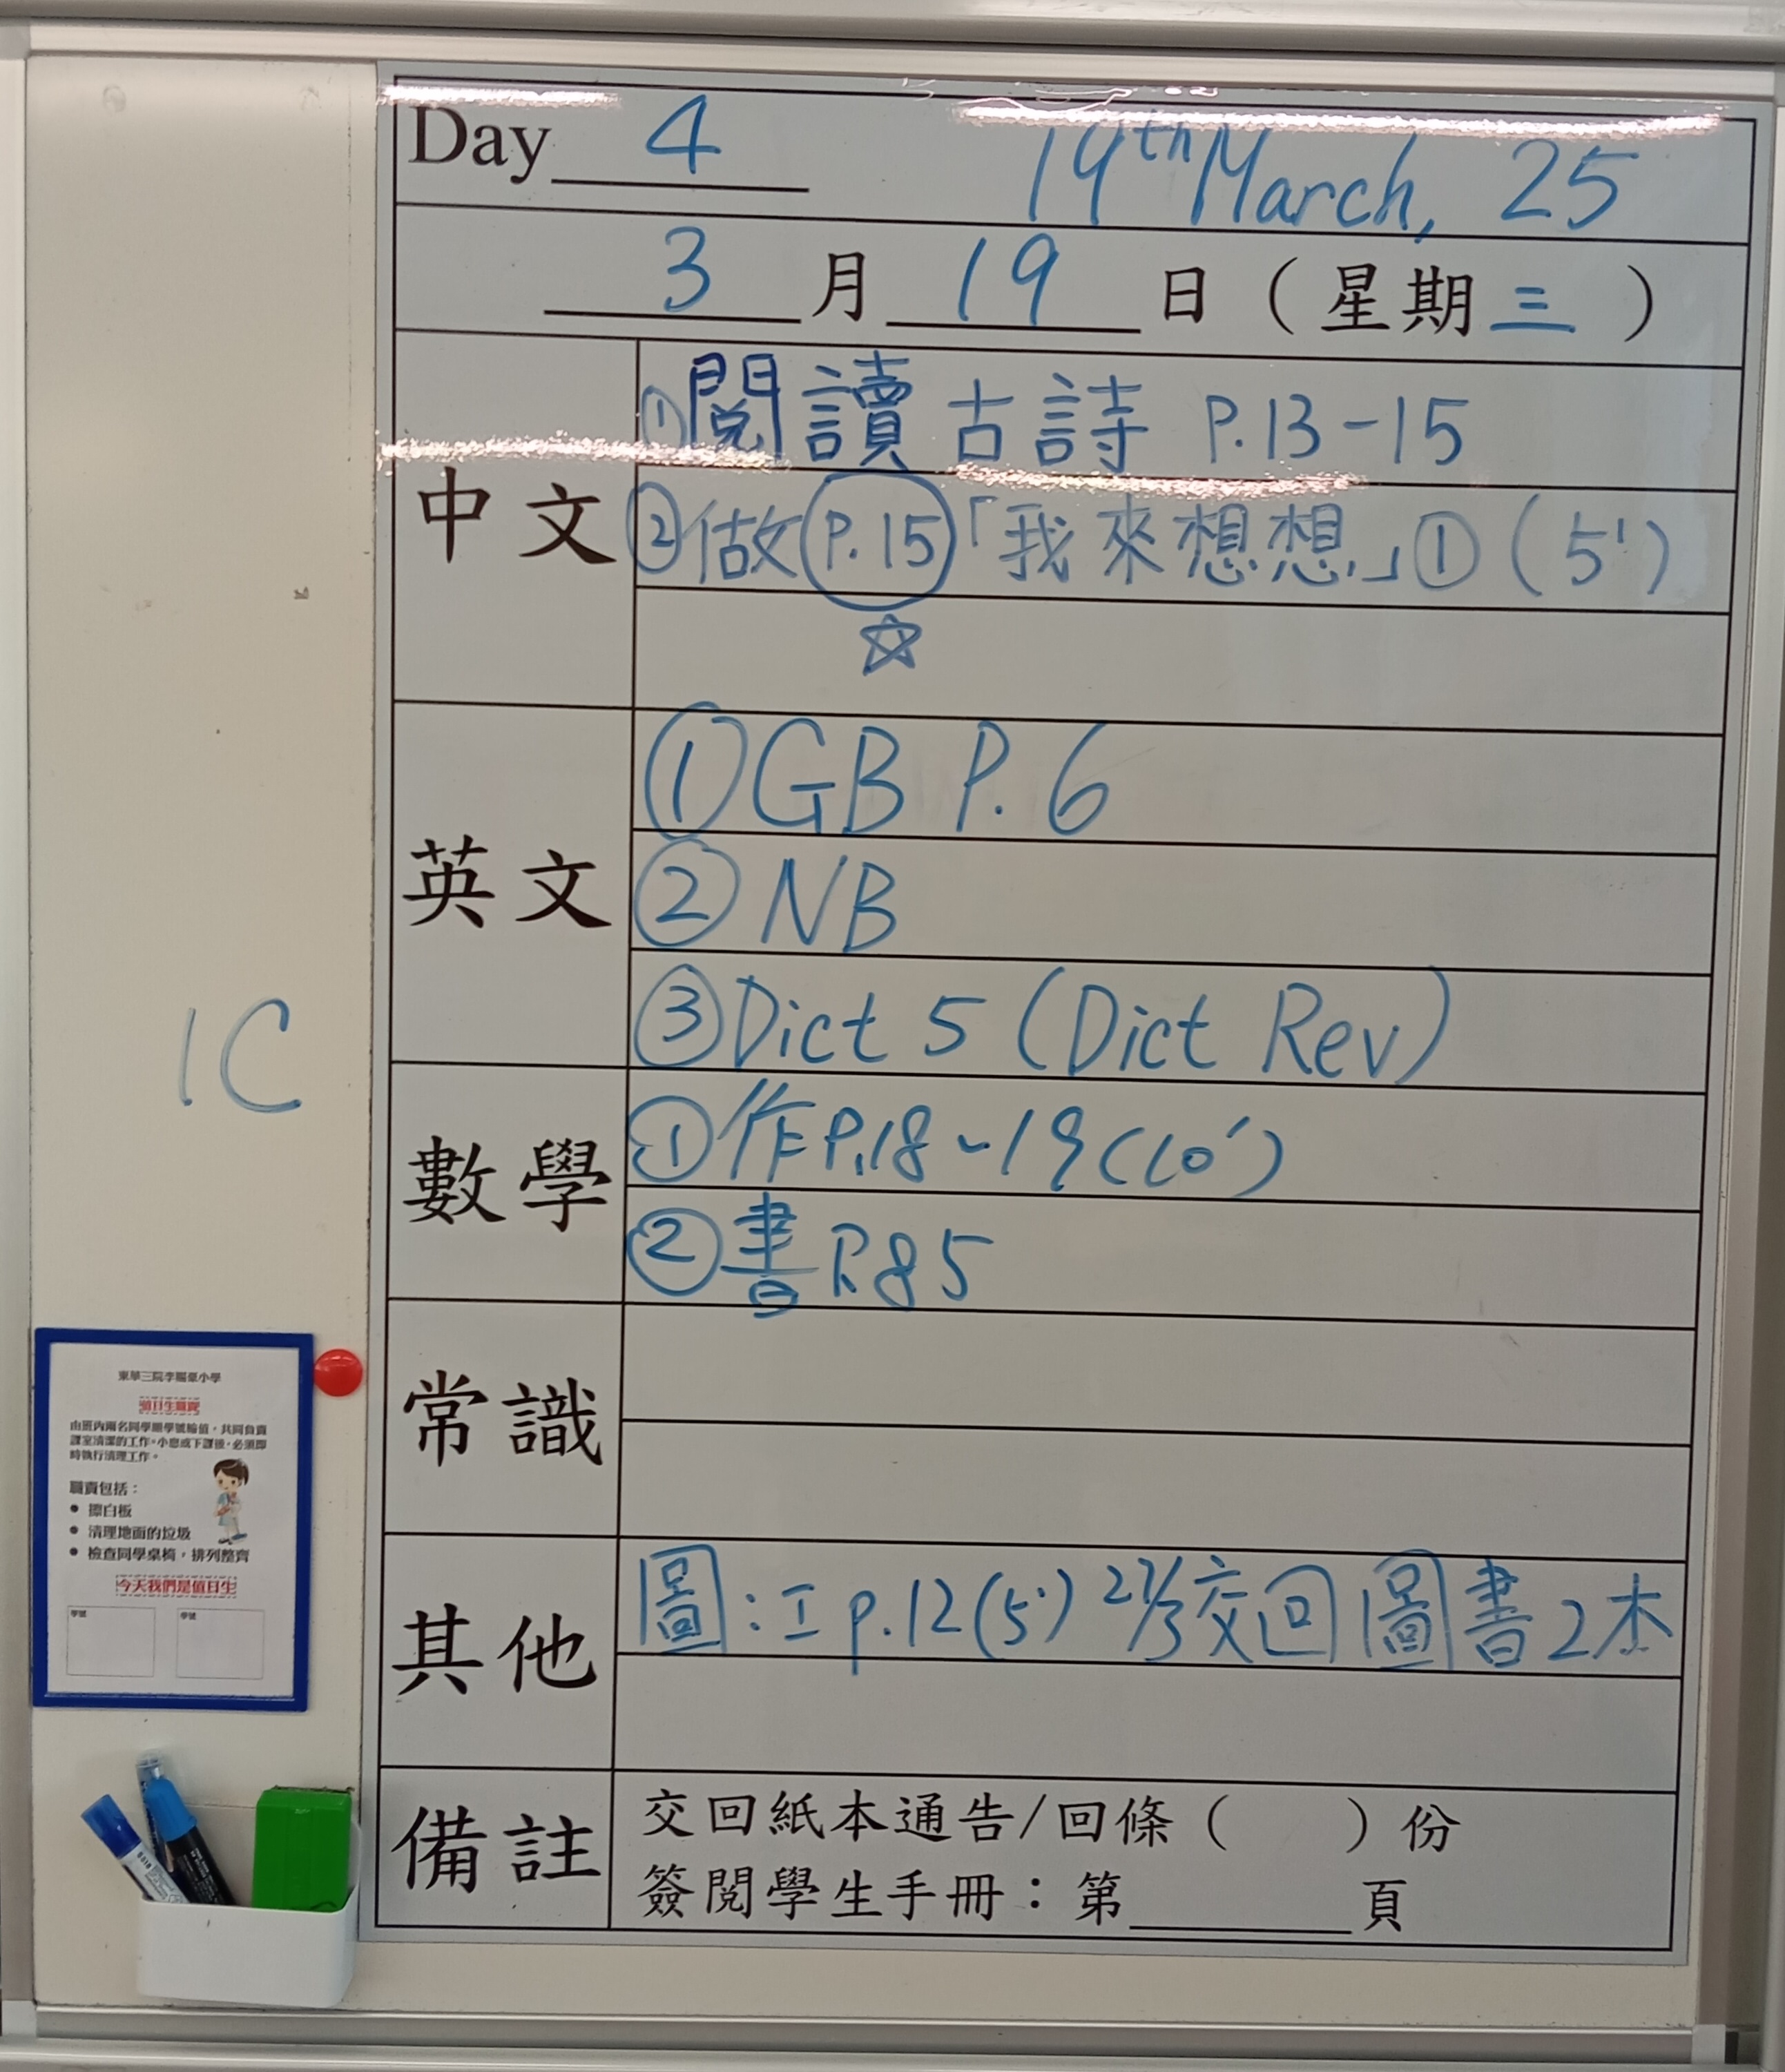 Day 4 19th March, 25
3 月 19 日 (星期三)
中文
①閱讀古詩 P.13-15
②做P.15「我來想想」① (5')
☆
英文
①GB P.6
②NB
③Dict 5 (Dict Rev)
數學
①作P.18~19(10')
②書P.85
常識
其他
圖:工p.12(5') 21/3交回圖書2本
備註
交回紙本通告/回條( )份
簽閱學生手冊:第____頁
1C
東華三院李賜豪小學
值日生職責
由班內兩名同學順學號輪值,共同負責
課室清潔的工作。小息或下課後,必須即
時執行清理工作。
職責包括:
● 擦白板
● 清理地面的垃圾
● 檢查同學桌椅,排列整齊
今天我們是值日生
學號 學號